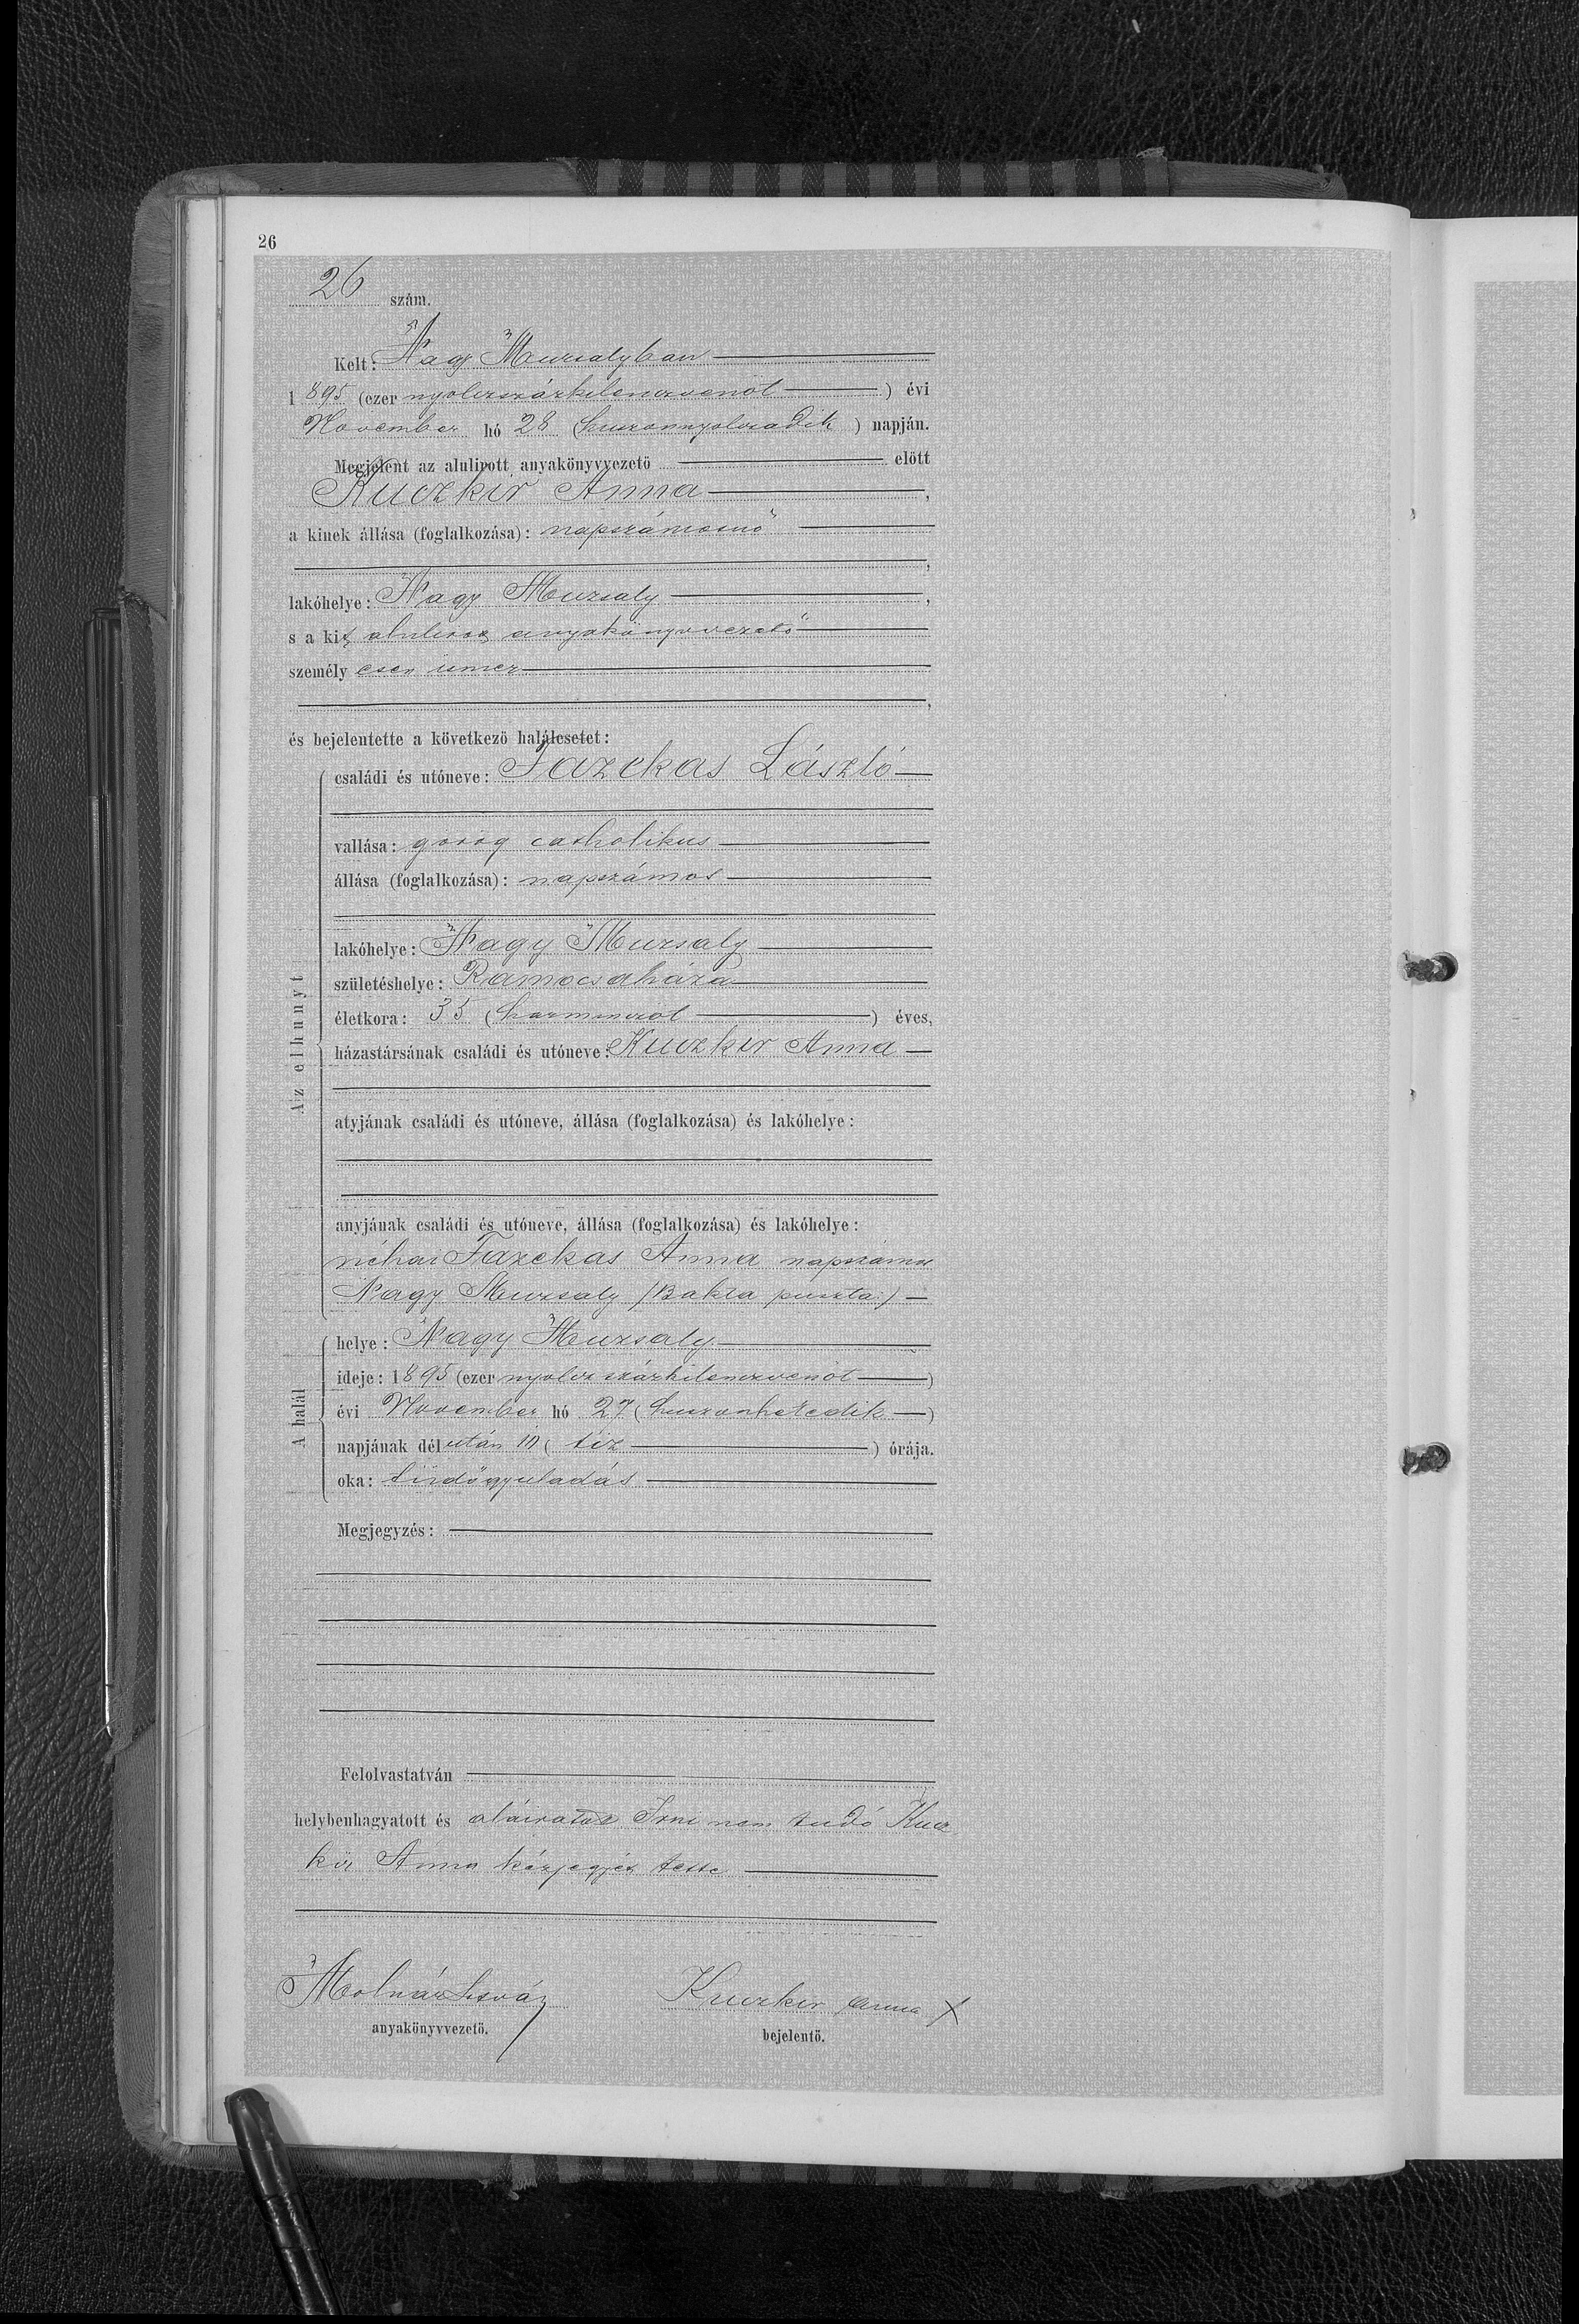 26
26 szám.
Kelt: Nagy Muzsalyban
1895 (ezer nyolczszázkilenczvenöt) évi
November hó 28 (huszonnyolczadik) napján.
Megjelent az alulirott anyakönyvvezető előtt
Kuczkir Anna,
a kinek állása (foglalkozása): napszámosnő
,
lakóhelye: Nagy Muzsaly,
s a kit alulirott anyakönyvvezető
személyesen ismer
,
és bejelentette a következő halálesetet:
Az elhunyt
családi és utóneve: Fazekas László
vallása: görög catholikus
állása (foglalkozása): napszámos
lakóhelye: Nagy Muzsaly
születéshelye: Ramocsaháza
életkora: 35 (harminczöt) éves,
házastársának családi és utóneve: Kuczkir Anna
atyjának családi és utóneve, állása (foglalkozása) és lakóhelye:
anyjának családi és utóneve, állása (foglalkozása) és lakóhelye:
néhai Fazekas Anna napszámos
Nagy Muzsaly /Bakta puszta:/
A halál
helye: Nagy Muzsaly
ideje: 1895 (ezer nyolczszázkilenczvenöt)
évi November hó 27 (huszonhetedik)
napjának délután 10 (tiz) órája.
oka: tüdőgyuladás
Megjegyzés:
Felolvastatván
helybenhagyatott és aláiratott Irni nem tudó Kucz
kir Anna kézjegyét tette
Molnár István Kuczkir Anna X
anyakönyvvezető. bejelentő.